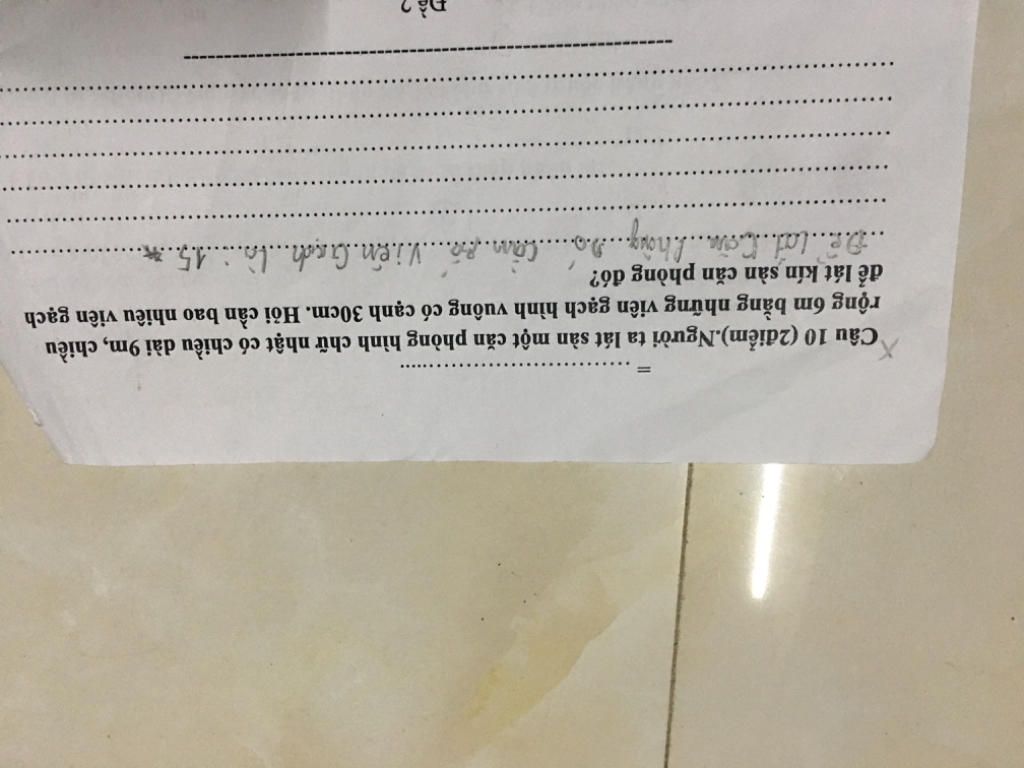 = ........................................
Câu 10 (2điểm).Người ta lát sàn một căn phòng hình chữ nhật có chiều dài 9m, chiều
rộng 6m bằng những viên gạch hình vuông có cạnh 30cm. Hỏi cần bao nhiêu viên gạch
để lát kín sàn căn phòng đó?
Để lát căn phòng đó cần số viên Gạch là : 15
Đề 2